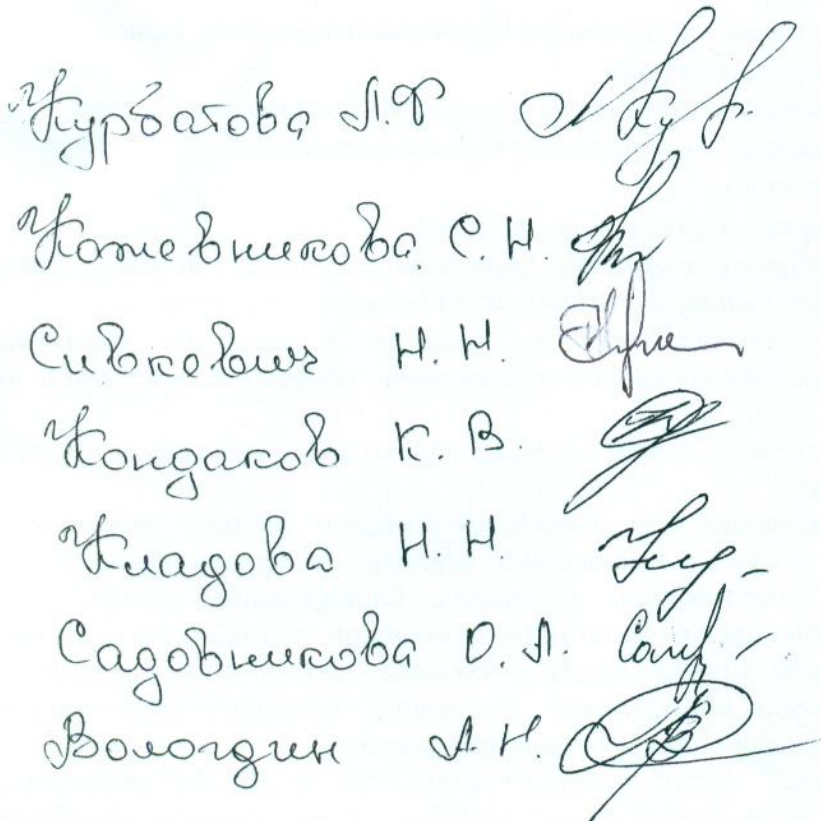 Курбатова Л.Ф
Кожевникова С.Н.
Сивкевич Н.Н.
Кондаков К.В.
Кладова Н.Н.
Садовникова О.Л.
Вологдин А.Н.